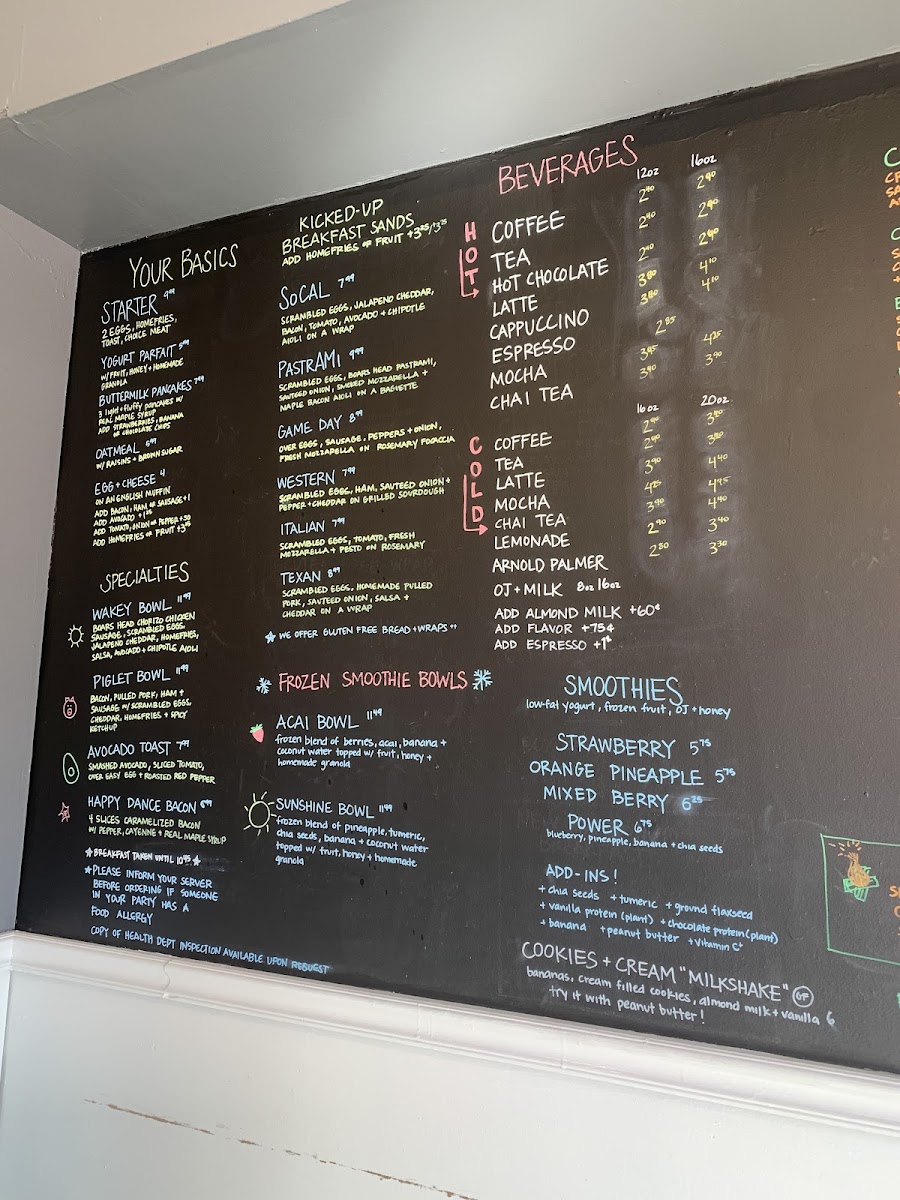 YOUR BASICS
STARTER
2 EGGS, HOMEFRIES,
TOAST, CHOICE MEAT
YOGURT PARFAIT
W/ FRUIT, HONEY + HOMEMADE
GRANOLA
BUTTERMILK PANCAKES
3 light + fluffy pancakes w/
REAL MAPLE SYRUP
ADD STRAWBERRIES, BANANA
OR CHOCOLATE CHIPS
OATMEAL
W/ RAISINS + BROWN SUGAR
EGG + CHEESE 4
ON AN ENGLISH MUFFIN
ADD BACON, HAM OR SAUSAGE +1
ADD AVOCADO
ADD TOMATO, ONION OR PEPPER +.50
ADD HOMEFRIES OR FRUIT
SPECIALTIES
WAKEY BOWL 11.99
BOARS HEAD CHORIZO CHICKEN
SAUSAGE, SCRAMBLED EGGS,
JALAPENO CHEDDAR, HOMEFRIES,
SALSA, AVOCADO + CHIPOTLE AIOLI
PIGLET BOWL 11.99
BACON, PULLED PORK, HAM +
SAUSAGE W/ SCRAMBLED EGGS,
CHEDDAR, HOMEFRIES + SPICY
KETCHUP
AVOCADO TOAST 7.99
SMASHED AVOCADO, SLICED TOMATO,
OVER EASY EGG + ROASTED RED PEPPER
HAPPY DANCE BACON
4 SLICES CARAMELIZED BACON
W/ PEPPER, CAYENNE + REAL MAPLE SYRUP
BREAKFAST TAKEN UNTIL
PLEASE INFORM YOUR SERVER
BEFORE ORDERING IF SOMEONE
IN YOUR PARTY HAS A
FOOD ALLERGY
COPY OF HEALTH DEPT INSPECTION AVAILABLE UPON REQUEST
KICKED-UP
BREAKFAST SANDS
ADD HOMEFRIES OR FRUIT
SOCAL 7.99
SCRAMBLED EGGS, JALAPENO CHEDDAR,
BACON, TOMATO, AVOCADO + CHIPOTLE
AIOLI ON A WRAP
PASTRAMI 9.99
SCRAMBLED EGGS, BOARS HEAD PASTRAMI,
SAUTEED ONION, SMOKED MOZZARELLA +
MAPLE BACON AIOLI ON A BAGUETTE
GAME DAY 8.99
OVER EGGS, SAUSAGE, PEPPERS + ONION,
FRESH MOZZARELLA ON ROSEMARY FOCACCIA
WESTERN 7.99
SCRAMBLED EGGS, HAM, SAUTEED ONION +
PEPPER + CHEDDAR ON GRILLED SOURDOUGH
ITALIAN 7.99
SCRAMBLED EGGS, TOMATO, FRESH
MOZZARELLA + PESTO ON ROSEMARY
TEXAN 8.99
SCRAMBLED EGGS, HOMEMADE PULLED
PORK, SAUTEED ONION, SALSA +
CHEDDAR ON A WRAP
WE OFFER GLUTEN FREE BREAD + WRAPS
FROZEN SMOOTHIE BOWLS
ACAI BOWL 11.49
frozen blend of berries, acai, banana +
coconut water topped w/ fruit, honey +
homemade granola
SUNSHINE BOWL 11.99
frozen blend of pineapple, tumeric,
chia seeds, banana + coconut water
topped w/ fruit, honey + homemade
granola
BEVERAGES
12oz 16oz
HOT
COFFEE
TEA
HOT CHOCOLATE
LATTE
CAPPUCCINO
ESPRESSO
MOCHA
CHAI TEA
16oz 20oz
COLD
COFFEE
TEA
LATTE
MOCHA
CHAI TEA
LEMONADE
ARNOLD PALMER
OJ + MILK 8oz 16oz
ADD ALMOND MILK +60¢
ADD FLAVOR +75¢
ADD ESPRESSO +1
SMOOTHIES
low-fat yogurt, frozen fruit, OJ + honey
STRAWBERRY 5.75
ORANGE PINEAPPLE 5.75
MIXED BERRY 6.25
POWER 6.75
blueberry, pineapple, banana + chia seeds
ADD-INS!
+ chia seeds + tumeric + ground flaxseed
+ vanilla protein (plant) + chocolate protein (plant)
+ banana + peanut butter + vitamin C
COOKIES + CREAM "MILKSHAKE" GF
bananas, cream filled cookies, almond milk + vanilla 6
try it with peanut butter!